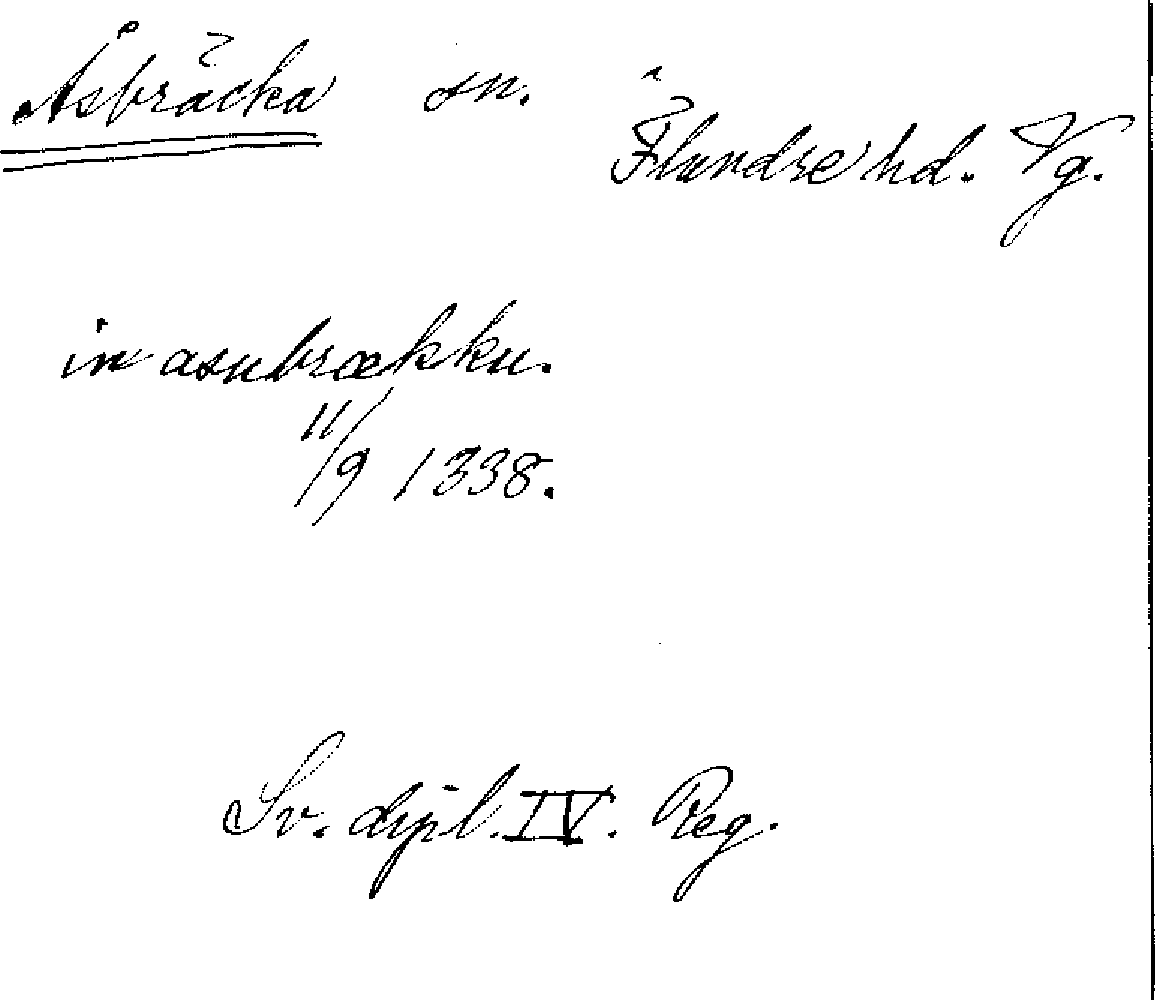 Åsbräcka sn.
Flundre hd. Vg.
in asubrækku.
11/9 1338.
Sv. dipl. IV. Reg.